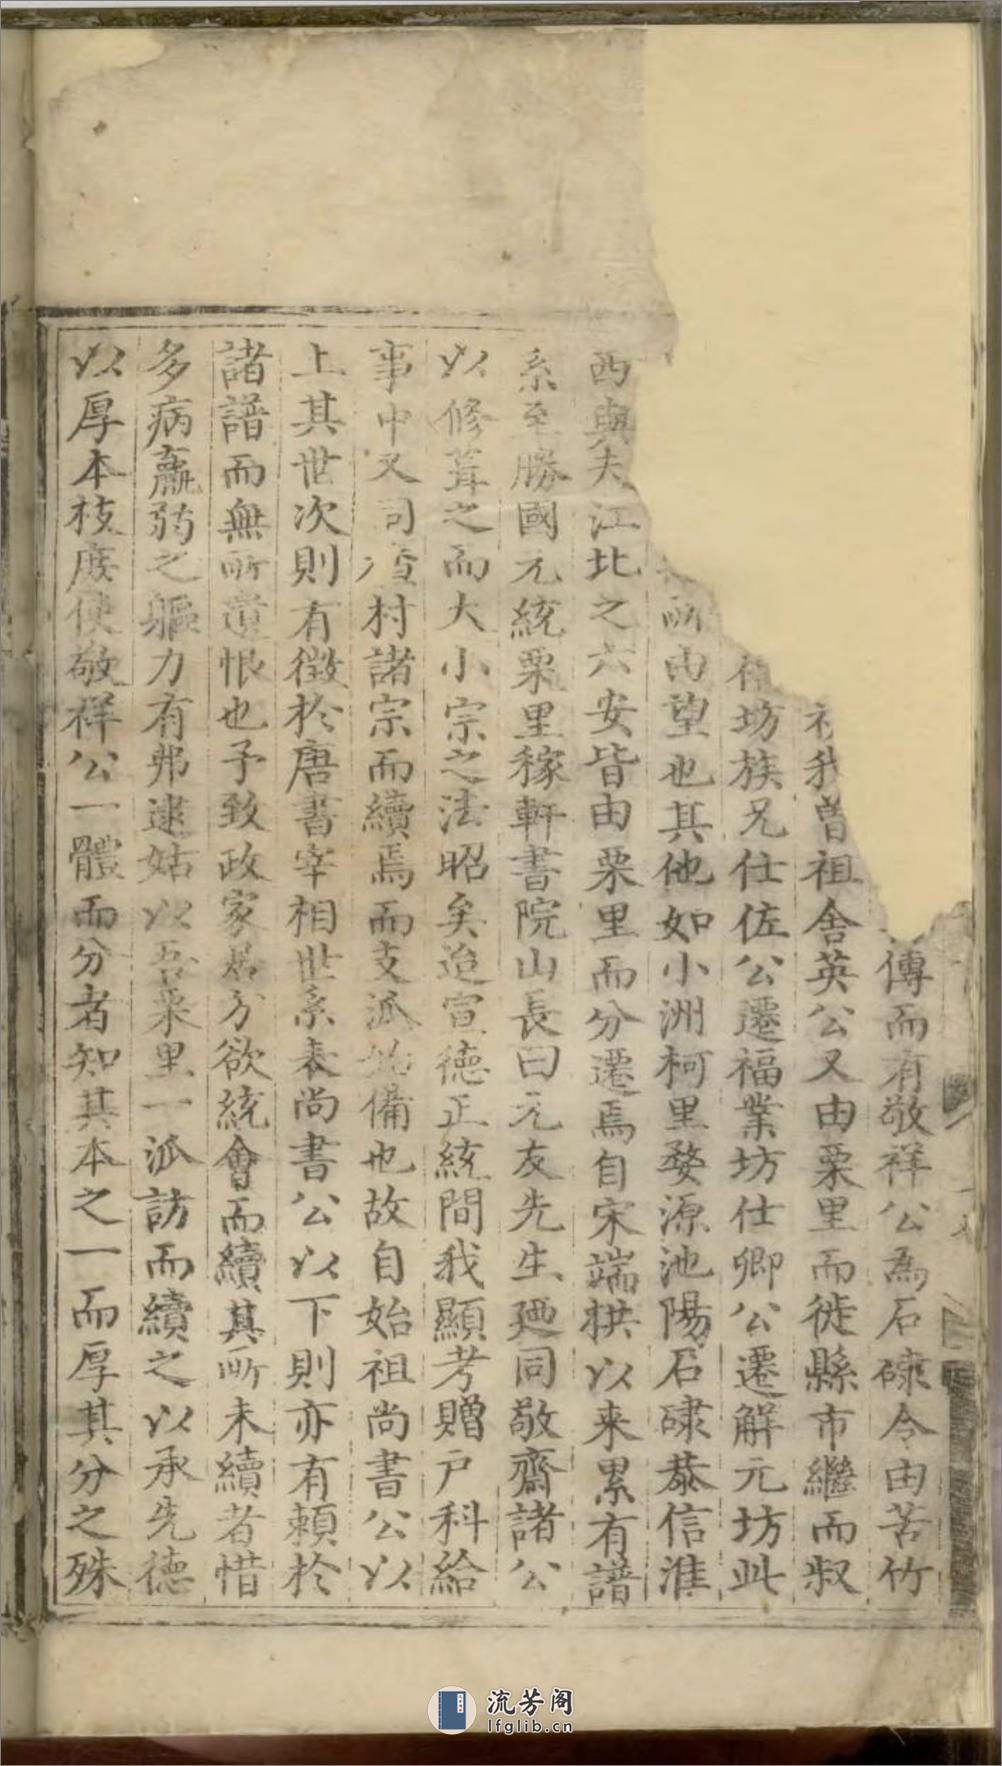 傳而有敬祥公為石磚令由苦竹
我曾祖舍英公又由栗里而徙縣市繼而叔
坊族兄仕佐公遷福業坊仕卿公遷解元坊此
所由望也其他如小洲柯里婺源池陽石磚恭信淮
西與夫江北之六安皆由栗里而分遷焉自宋端拱以来累有譜
系至勝國元統栗里稼軒書院山長曰元友先生廼同敬齋諸公
以修葺之而大小宗之法昭矣迨宣德正統間我顯考贈户科給
事中又同查村諸宗而續焉而支派備也故自始祖尚書公以
上其世次則有徵於唐書宰相世系表尚書公以下則亦有頼於
諸譜而無所遺恨也予致政家居方欲統會而續其所未續者惜
多病羸弱之軀力有弗逮姑以吾栗里一派訪而續之以承先德
以厚本枝庶使敬祥公一體而分者知其本之一而厚其分之殊
流芳阁
lfglib.cn